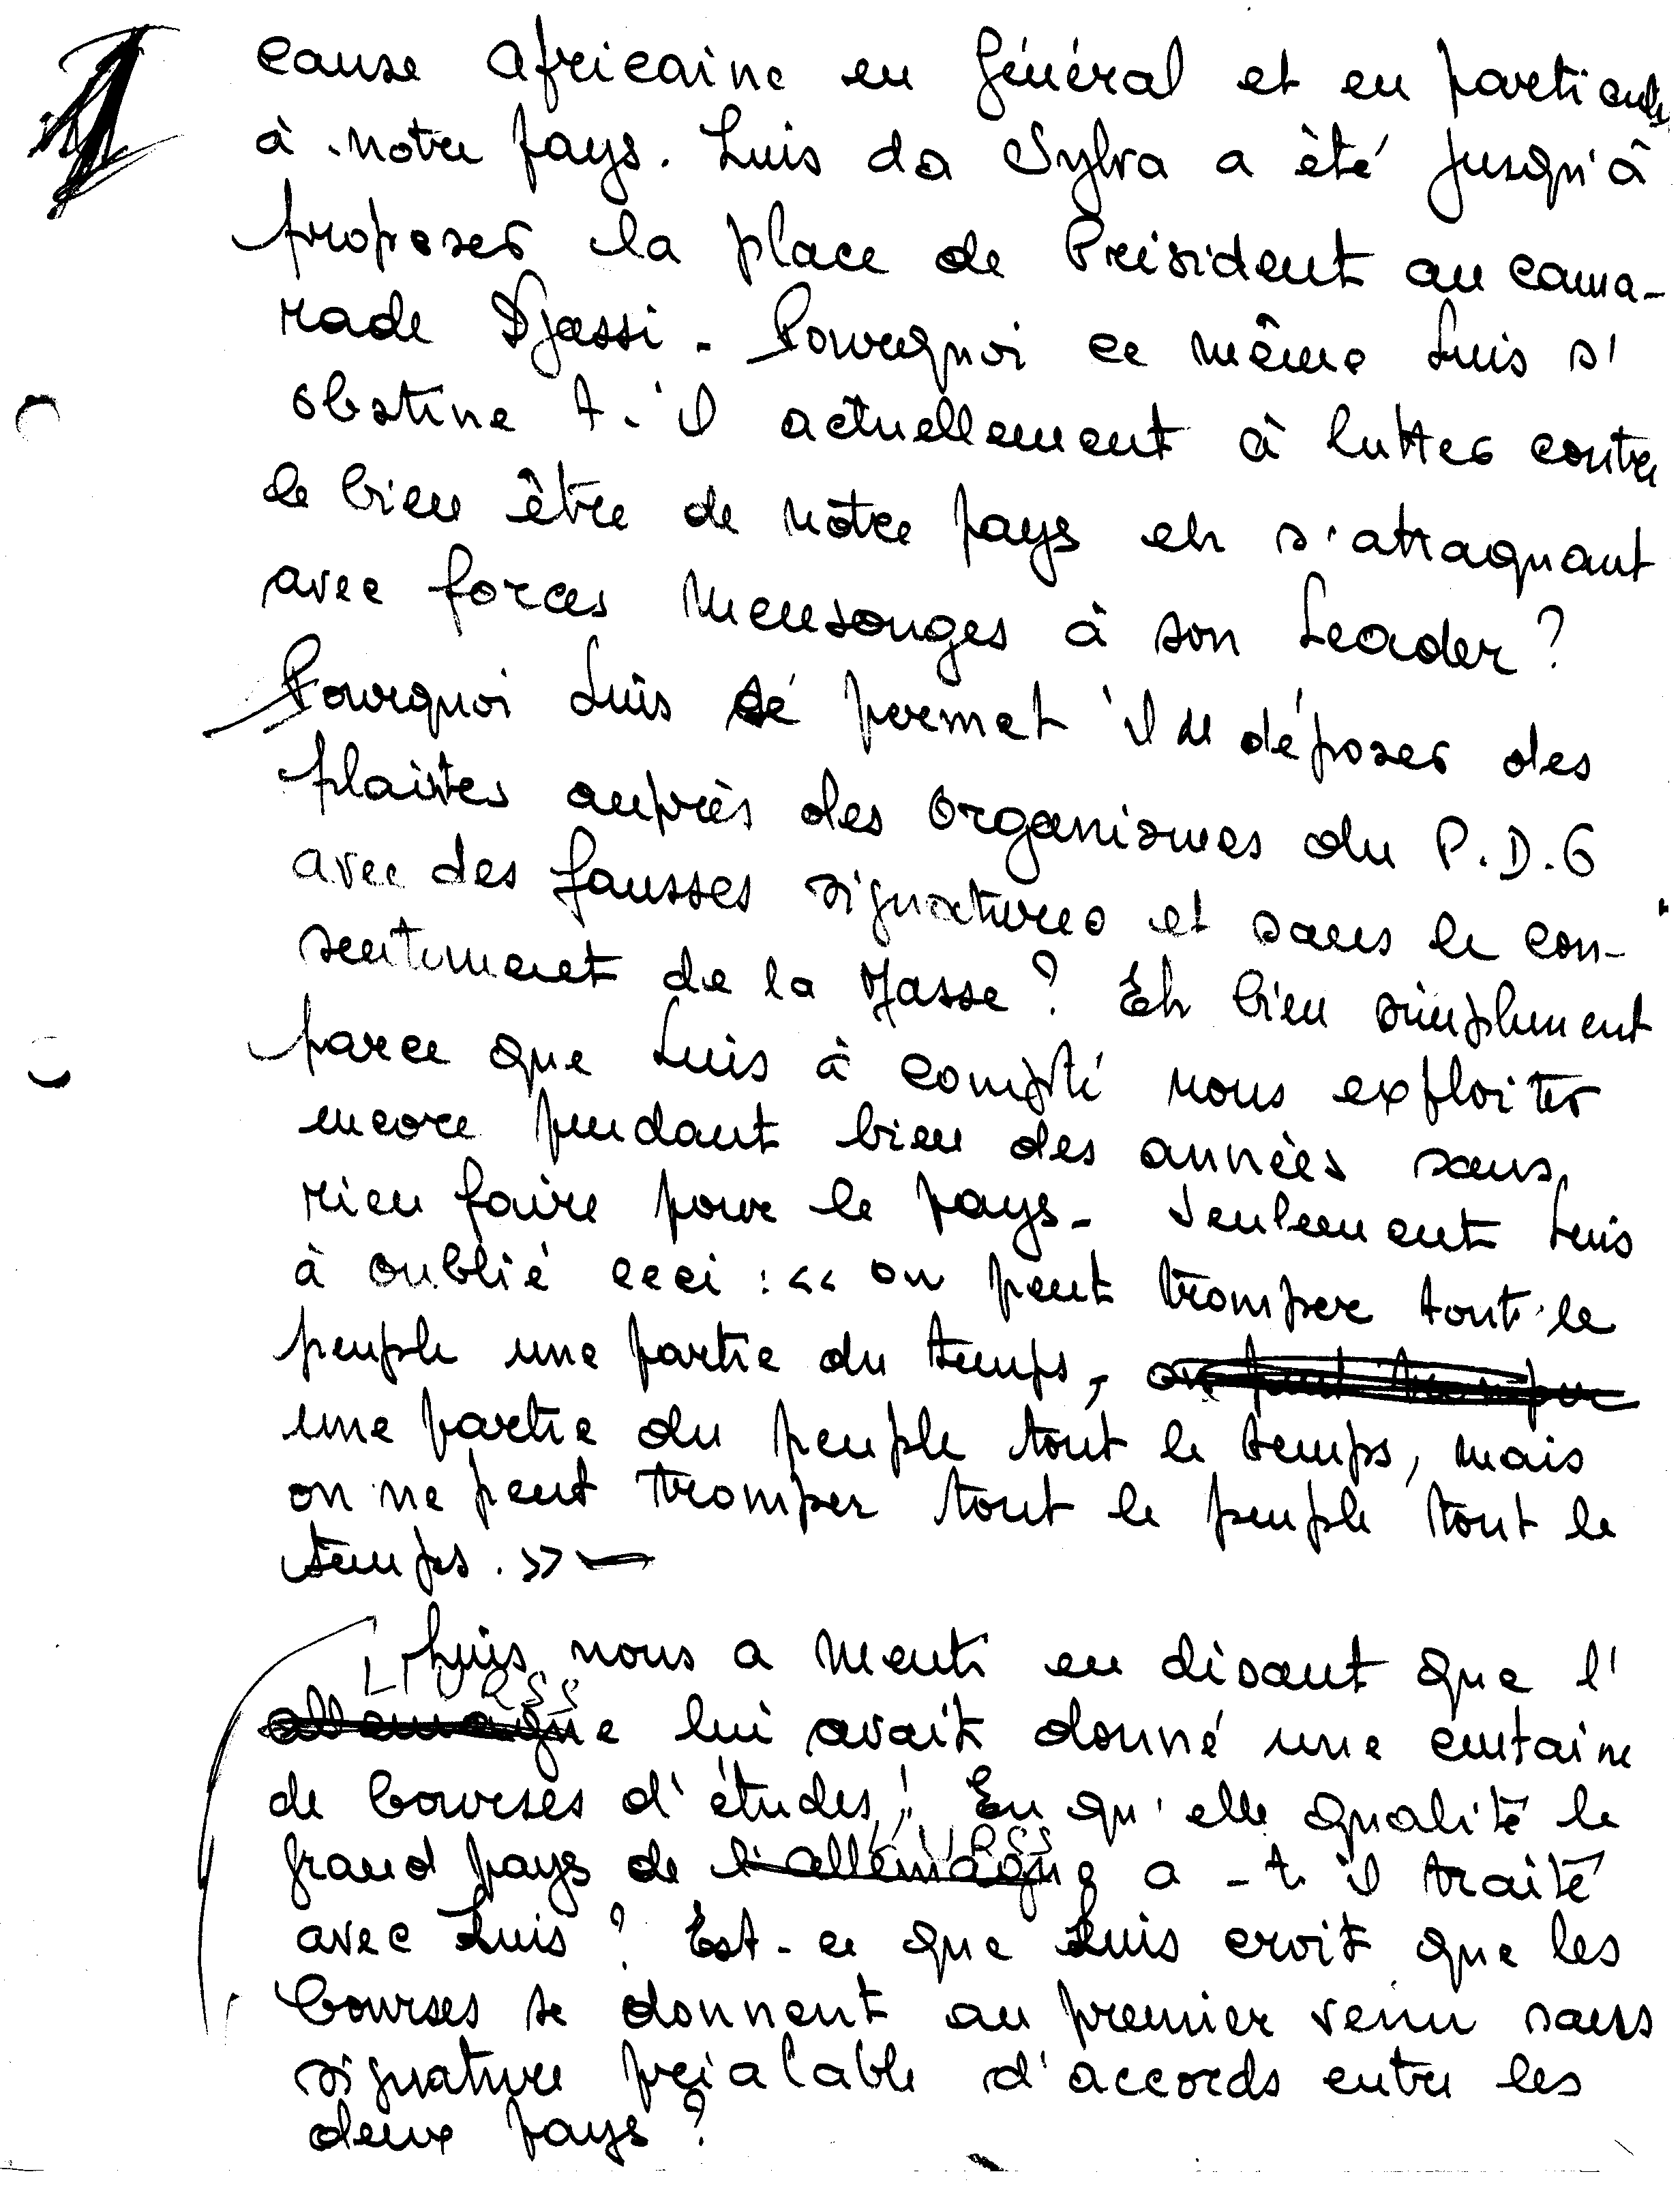 cause africaine en Général et en particuli
à notre pays. Luis da Sylva a été jusqu'à
proposer la place de Président au cama-
rade Djassi - Pourquoi ce même Luis s'
obstine t-'il actuellement à lutter contre
le bien être de nôtre pays eh s'attaquant
avec forces mensonges à son Leader ?
Pourquoi Luis sé permet 'il de déposer des
plaintes auprès des organismes du P.D.G
avec des fausses signatures et sans le con-
sentiment de la Masse ? Eh bien simplement
parce que Luis à compté nous exploiter
encore pendant bien des années sans
rien faire pour le pays - Seulement Luis
à oublié ceci : << on peut tromper tout le
peuple une partie du temps, on peut tromper
une partie du peuple tout le temps, mais
on ne peut tromper tout le peuple tout le
temps. >> -
Luis nous a menti en disant que l'
L'URSS
allemagne lui avait donné une centaine
de bourses d'études ! En qu'elle qualité le
L'URSS
grand pays de l'allemagne a -t-il traité
avec Luis ? Est-ce que Luis croit que les
bourses se donnent au premier venu sans
signature préalable d'accords entre les
deux pays ?